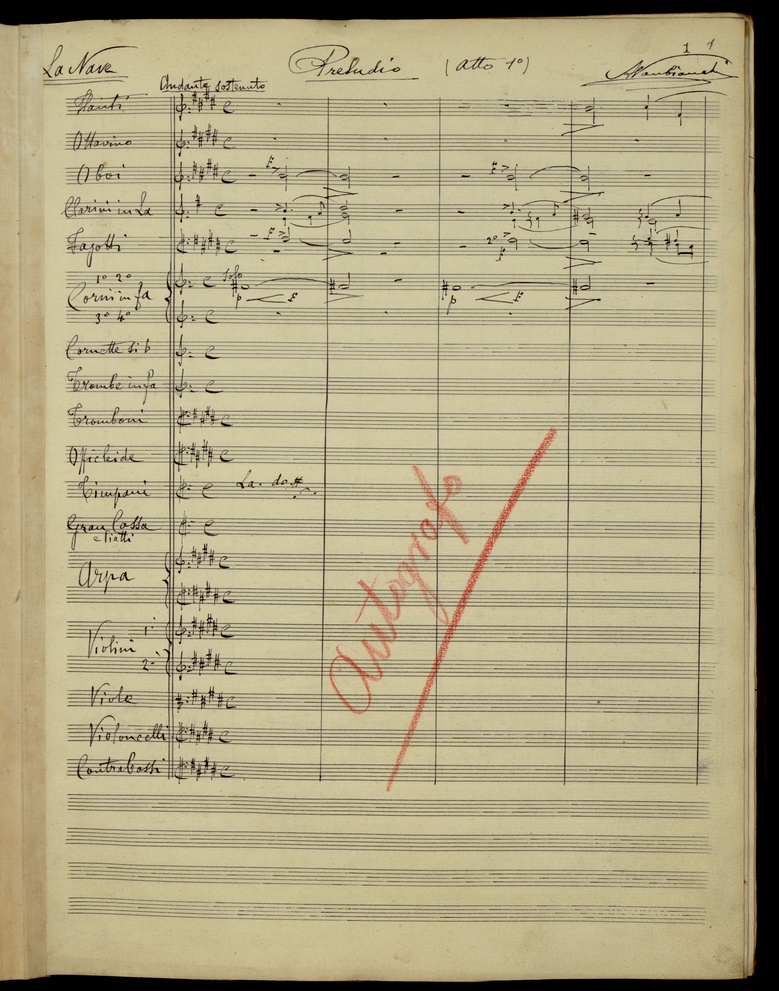 1 1
La Nave Preludio (Atto 1º)
Andante sostenuto
Flauti
Ottavino
Oboi
Clarini in La
Fagotti
1º 2º Solo
Corni in fa
3º 4º
Cornette si b
Trombe in fa
Tromboni
Officleide
Timpani La. do #
Gran Cassa
e Piatti
Arpa
1i
Violini
2i
Viole
Violoncelli
Contrabassi
Autografo